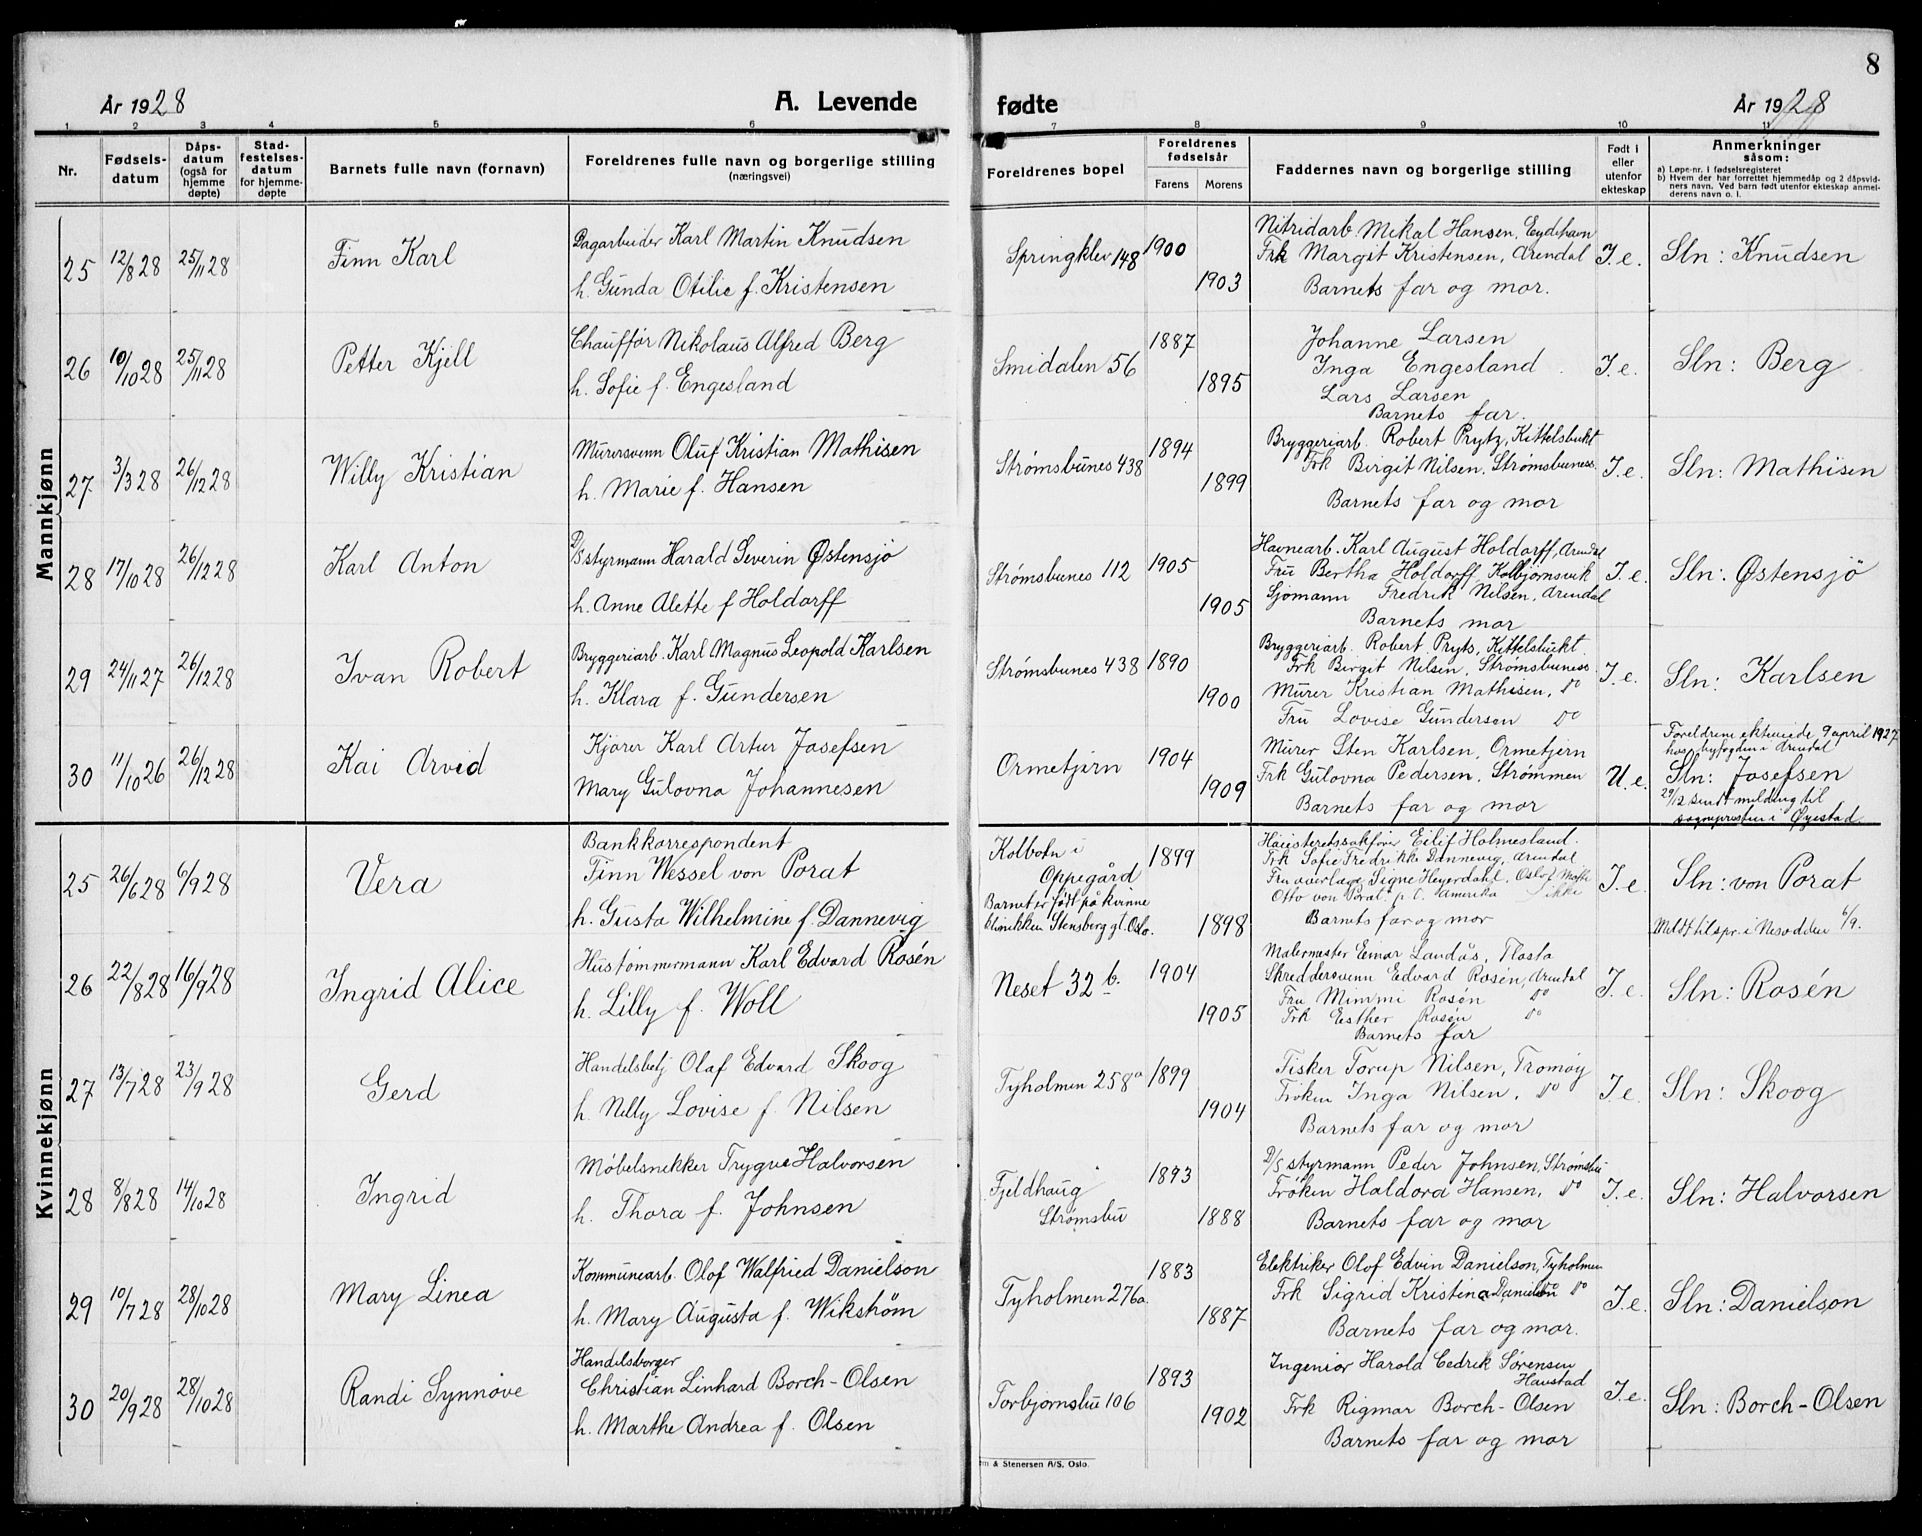 8
År 1928
A. Levende
fødte
År 1928
1 2 3 4 5 6 7 8 9 10 11
Nr.
Fødsels-
datum
Dåps-
datum
(også for
hjemme
døpte)
Stad-
festelses-
datum
for hjemme-
døpte
Barnets fulle navn (fornavn)
Foreldrenes fulle navn og borgerlige stilling
(næringsvei)
Foreldrenes bopel
Foreldrenes
fødselsår
Farens Morens
Faddernes navn og borgerlige stilling
Født i
eller
utenfor
ekteskap
Anmerkninger
såsom:
a) Løpe-nr. i fødselsregisteret
b) Hvem der har forrettet hjemmedåp og 2 dåpsvid-
ners navn. Ved barn født utenfor ekteskap anmel-
derens navn o. l.
Mannkjønn
25 12/8 28 25/11 28 Finn Karl
Dagarbeider Karl Martin Knudsen
h. Gunda Otilie f. Kristensen
Springklev 148 1900 1903
Nitridarb. Mikal Hansen, Eydehavn
Frk Margit Kristensen, Arendal
Barnets far og mor.
I.e. Sln: Knudsen
26 10/10 28 25/11 28 Petter Kjell
Chauffør Nikolaus Alfred Berg
h. Sofie f. Engesland
Smidalen 56 1887 1895
Johanne Larsen
Inga Engesland
Lars Larsen
Barnets far.
I.e. Sln: Berg
27 3/3 28 26/12 28 Willy Kristian
Murersvenn Oluf Kristian Mathisen
h. Marie f. Hansen
Strømsbunes 438 1894 1899
Bryggeriarb. Robert Prytz, Kittelsbukt
Frk Birgit Nilsen, Strømsbunes.
Barnets far og mor
I.e. Sln: Mathisen
28 17/10 28 26/12 28 Karl Anton
D/S styrmann Harald Severin Østensjø
h. Anne Alette f Holdorff
Strømsbunes 112 1905 1905
Havnearb. Karl August Holdorff, Arendal
Fru Bertha Holdorff, Kolbjørnsvik
Sjømann Fredrik Nilsen, Arendal
Barnets mor
I.e. Sln: Østensjø
29 24/11 27 26/12 28 Ivan Robert
Bryggeriarb. Karl Magnus Leopold Karlsen
h. Klara f. Gundersen
Strømsbunes 438 1890 1900
Bryggeriarb. Robert Pryts, Kittelsbukt.
Frk Birgit Nilsen, Strømsbunes
Murer Kristian Mathisen, do
Fru Lovise Gundersen do
I.e. Sln: Karlsen
30 11/10 26 26/12 28 Kai Arvid
Kjører Karl Artur Josefsen
Mary Gulovna Johannesen
Ormetjern 1904 1909
Murer Sten Karlsen, Ormetjern
Frk Gulovna Pedersen, Strømmen
Barnets far og mor
U.e.
Foreldrene ekteviede 9 april 1927
hos byfogden i Arendal
Sln: Josefsen
29/12 sendt melding til
sognepresten i Øyestad
Kvinnekjønn
25 26/6 28 6/9 28 Vera
Bankkorrespondent
Finn Wessel von Porat
h. Gusta Wilhelmine f. Dannevig
Kolbotn i
Oppegård
Barnet er født på kvinne
klinikken Stensberg gt. Oslo.
1899 1898
Høiesterettssakfører Eilif Holmesland.
Frk Sofie Fredrikke Dannevig, Arendal
Fru overlæge Signe Heyerdahl, Oslo
Otto von Porat, p. t. Amerika
Barnets far og mor
I.e. Sln: von Porat
Meldt til spr. i Nesodden 6/9.
26 22/8 28 16/9 28 Ingrid Alice
Hustømmermann Karl Edvard Rosén
h. Lilly f. Woll
Neset 32 b. 1904 1905
Malermester Einar Landås, Tlosta
Skreddersvenn Edvard Rosén, Arendal
Fru Mimmi Rosén do
Frk Esther Rosén do
Barnets far
I.e. Sln: Rosén
27 13/7 28 23/9 28 Gerd
Handelsbetj Olaf Edvard Skoog
h. Nelly Lovise f. Nilsen
Tyholmen 258a 1899 1904
Fisker Torup Nilsen, Tromøy
Frøken Inga Nilsen, do
Barnets far og mor
I.e. Sln: Skoog
28 8/8 28 14/10 28 Ingrid
Møbelsnikker Trygve Halvorsen
h. Thora f. Johnsen
Fjeldhaug
Strømsbu
1893 1888
D/S styrmann Peder Johnsen, Strømsbu
Frøken Haldora Hansen, do
Barnets far og mor
I.e. Sln: Halvorsen
29 10/7 28 28/10 28 Mary Linea
Kommunearb. Olof Walfried Danielson
h. Mary Augusta f. Wikstrøm
Tyholmen 276a. 1883 1887
Elektriker Olof Edvin Danielson, Tyholmen
Frk Sigrid Kristina Danielson do
Barnets far og mor.
I.e. Sln: Danielson
30 20/9 28 28/10 28 Randi Synnøve
Handelsborger
Christian Linhard Borch-Olsen
h. Marthe Andrea f. Olsen
Torbjørnsbu 106 1893 1902
Ingeniør Harold Cedrik Sørensen
Havstad
Frk Rigmor Borch-Olsen
Barnets far og mor
I.e. Sln: Borch-Olsen
m & Stenersen A/S, Oslo.